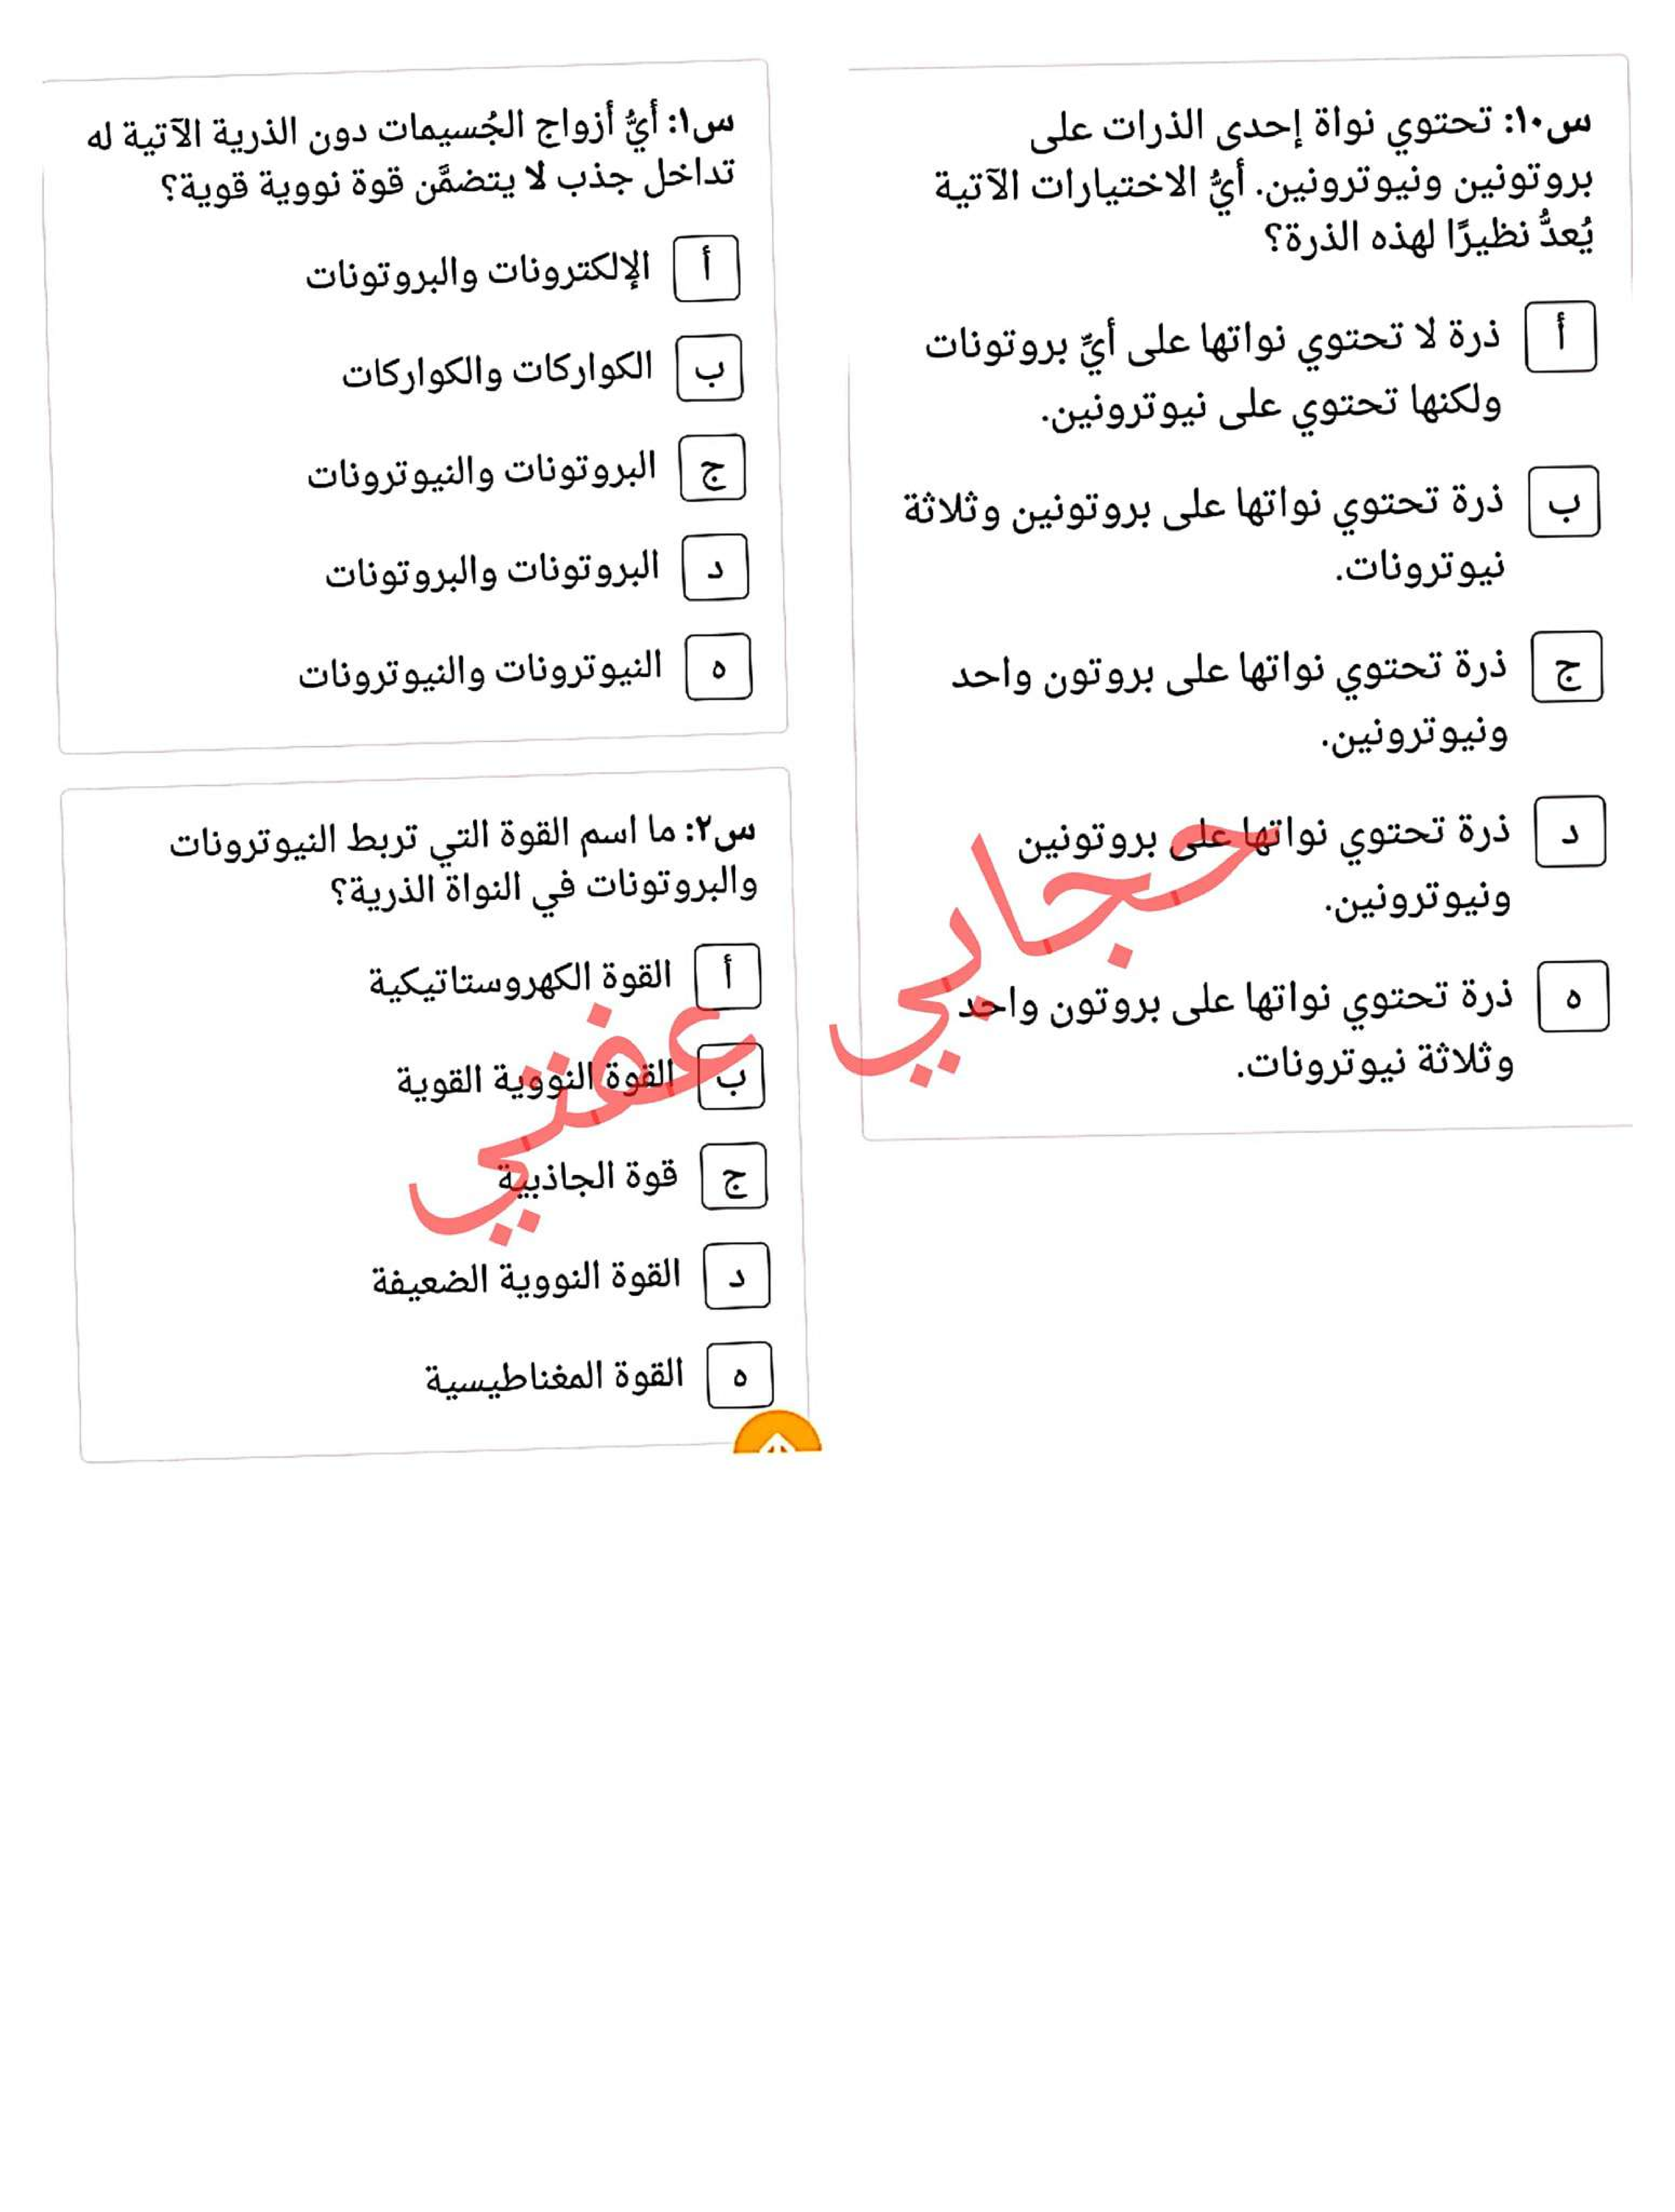 س١٠: تحتوي نواة إحدى الذرات على
بروتونين ونيوترونين. أيُّ الاختيارات الآتية
يُعدُّ نظيرًا لهذه الذرة؟
أ ذرة لا تحتوي نواتها على أيِّ بروتونات
ولكنها تحتوي على نيوترونين.
ب ذرة تحتوي نواتها على بروتونين وثلاثة
نيوترونات.
ج ذرة تحتوي نواتها على بروتون واحد
ونيوترونين.
د ذرة تحتوي نواتها على بروتونين
ونيوترونين.
ه ذرة تحتوي نواتها على بروتون واحد
وثلاثة نيوترونات.
س١: أيُّ أزواج الجُسيمات دون الذرية الآتية له
تداخل جذب لا يتضمَّن قوة نووية قوية؟
أ الإلكترونات والبروتونات
ب الكواركات والكواركات
ج البروتونات والنيوترونات
د البروتونات والبروتونات
ه النيوترونات والنيوترونات
س٢: ما اسم القوة التي تربط النيوترونات
والبروتونات في النواة الذرية؟
أ القوة الكهروستاتيكية
ب القوة النووية القوية
ج قوة الجاذبية
د القوة النووية الضعيفة
ه القوة المغناطيسية
حجابي عفتي